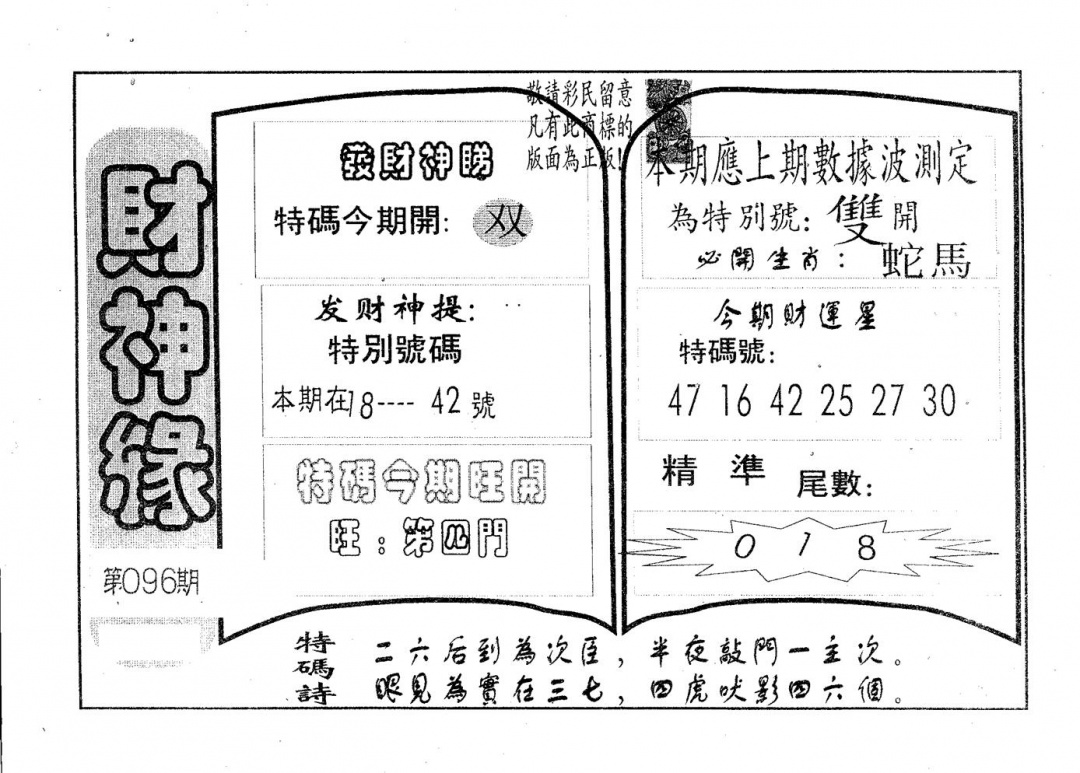 財神緣
第096期
敬請彩民留意
凡有此商標的
版面為正版!
發財神睇
特碼今期開: 双
发财神提:
特別號碼
本期在18---- 42號
特碼今期旺開
旺:第四門
本期應上期數據波測定
為特別號:雙開
必開生肖: 蛇馬
今期財運星
特碼號:
47 16 42 25 27 30
精 準 尾數:
0 1 8
特碼詩
二六后到為次臣,半夜敲門一主次。
眼見為實在三七,四虎吠影四六個。